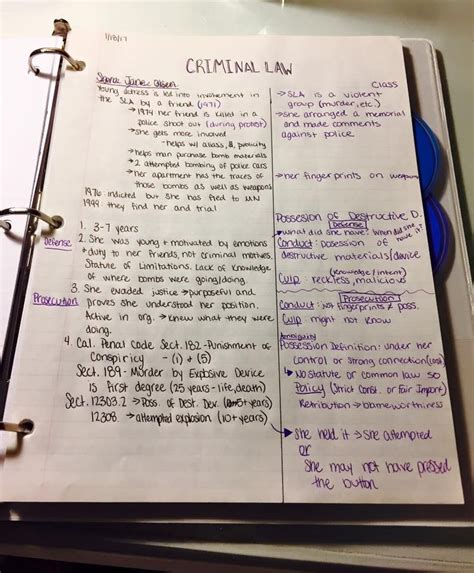 1/18/17
CRIMINAL LAW
Sara Jane Olsen
Young actress is led into involvement in
the SLA by a friend (1971)
→1974 her friend is killed in a
police shoot out (during protest)
→she gets more involved
- helps w/ assass., $, publicity
→helps main purchase bomb materials
→2 attempted bombing of police cars
→her apartment has the traces of
those bombs as well as weapons
1976 indicted but She has fled to MN
1999 they find her and trial
1. 3-7 years
Defense
2. She was young + motivated by emotions
+ duty to her friends, not criminal motives.
Statue of Limitations. Lack of Knowledge
of where bombs were going/doing.
3. She evaded justice → purposeful and
Prosecution
proves she understood her position.
Active in org. → knew what they were
doing.
4. Cal. Penal Code Sect. 182 - Punishment of
Conspiricy - (1) + (5)
Sect. 189 - Murder by Explosive Device
is First degree (25 years - life, death)
Sect. 12303.2 → Poss. of Dest. Dev. (5+years)
12308 → attempted explosion (10+ years)
Class
→SLA is a violent
group (murder, etc.)
→she arranged a memorial
and made comments
against police
→her fingerprints on weapons
Possesion of Destructive D.
Defense
→what did she have? When did she have it?
Conduct: posession of
destructive materials/device
(knowledge/intent)
Culp: reckless, malicious
Prosecution
Conduct: not fingerprints ≠ poss.
Culp might not know
Ambiguity
Possession Definition: under her
control or strong connection
→No statute or common law so
Policy (Strict Const. or Fair Import)
Retribution → blameworthiness
→she held it → she attempted
or
She may not have pressed
the button